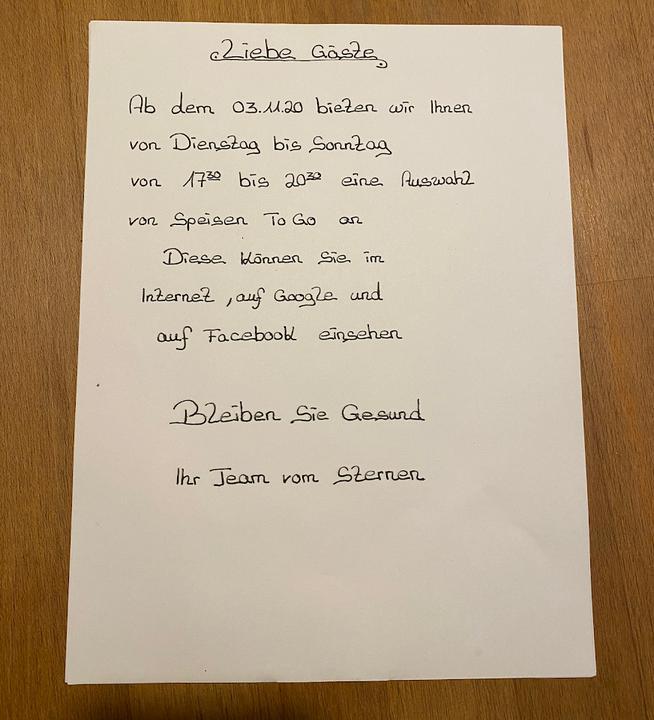 Liebe Gäste
Ab dem 03.11.20 bieten wir Ihnen
von Dienstag bis Sonntag
von 17³⁰ bis 20³⁰ eine Auswahl
von Speisen To Go an
Diese können Sie im
Internet, auf Google und
auf Facebook einsehen
Bleiben Sie Gesund
Ihr Team vom Sternen